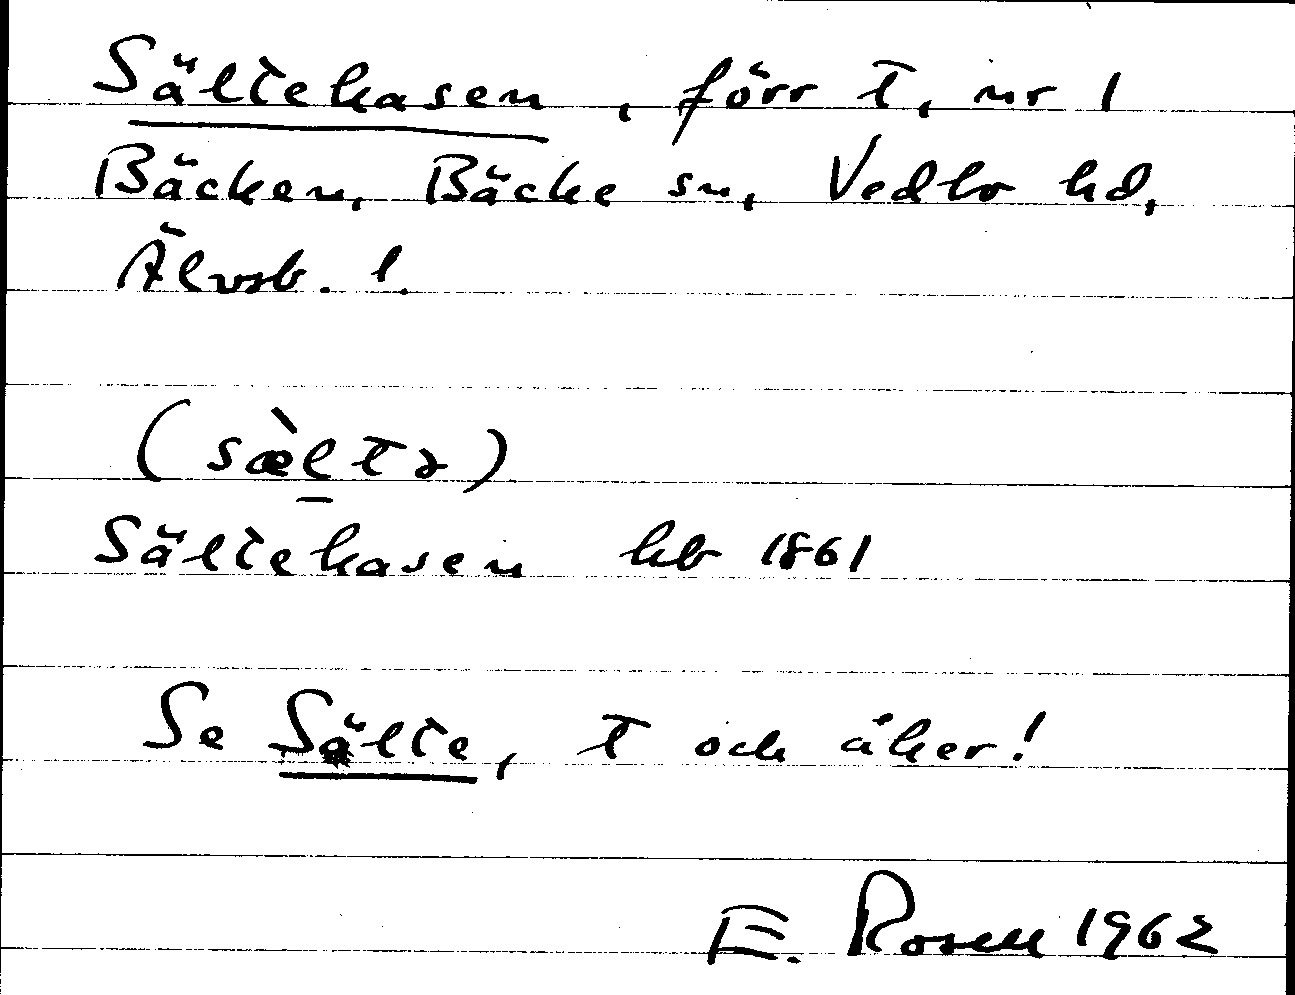 Sältekasen, förr t, nr 1
Bäcken, Bäcke sn, Vedbo hd,
Älvsb. l.
(sæ̀ltə)
Sältekasen hb 1861
Se Sälte, t och åker!
E. Rosell 1962